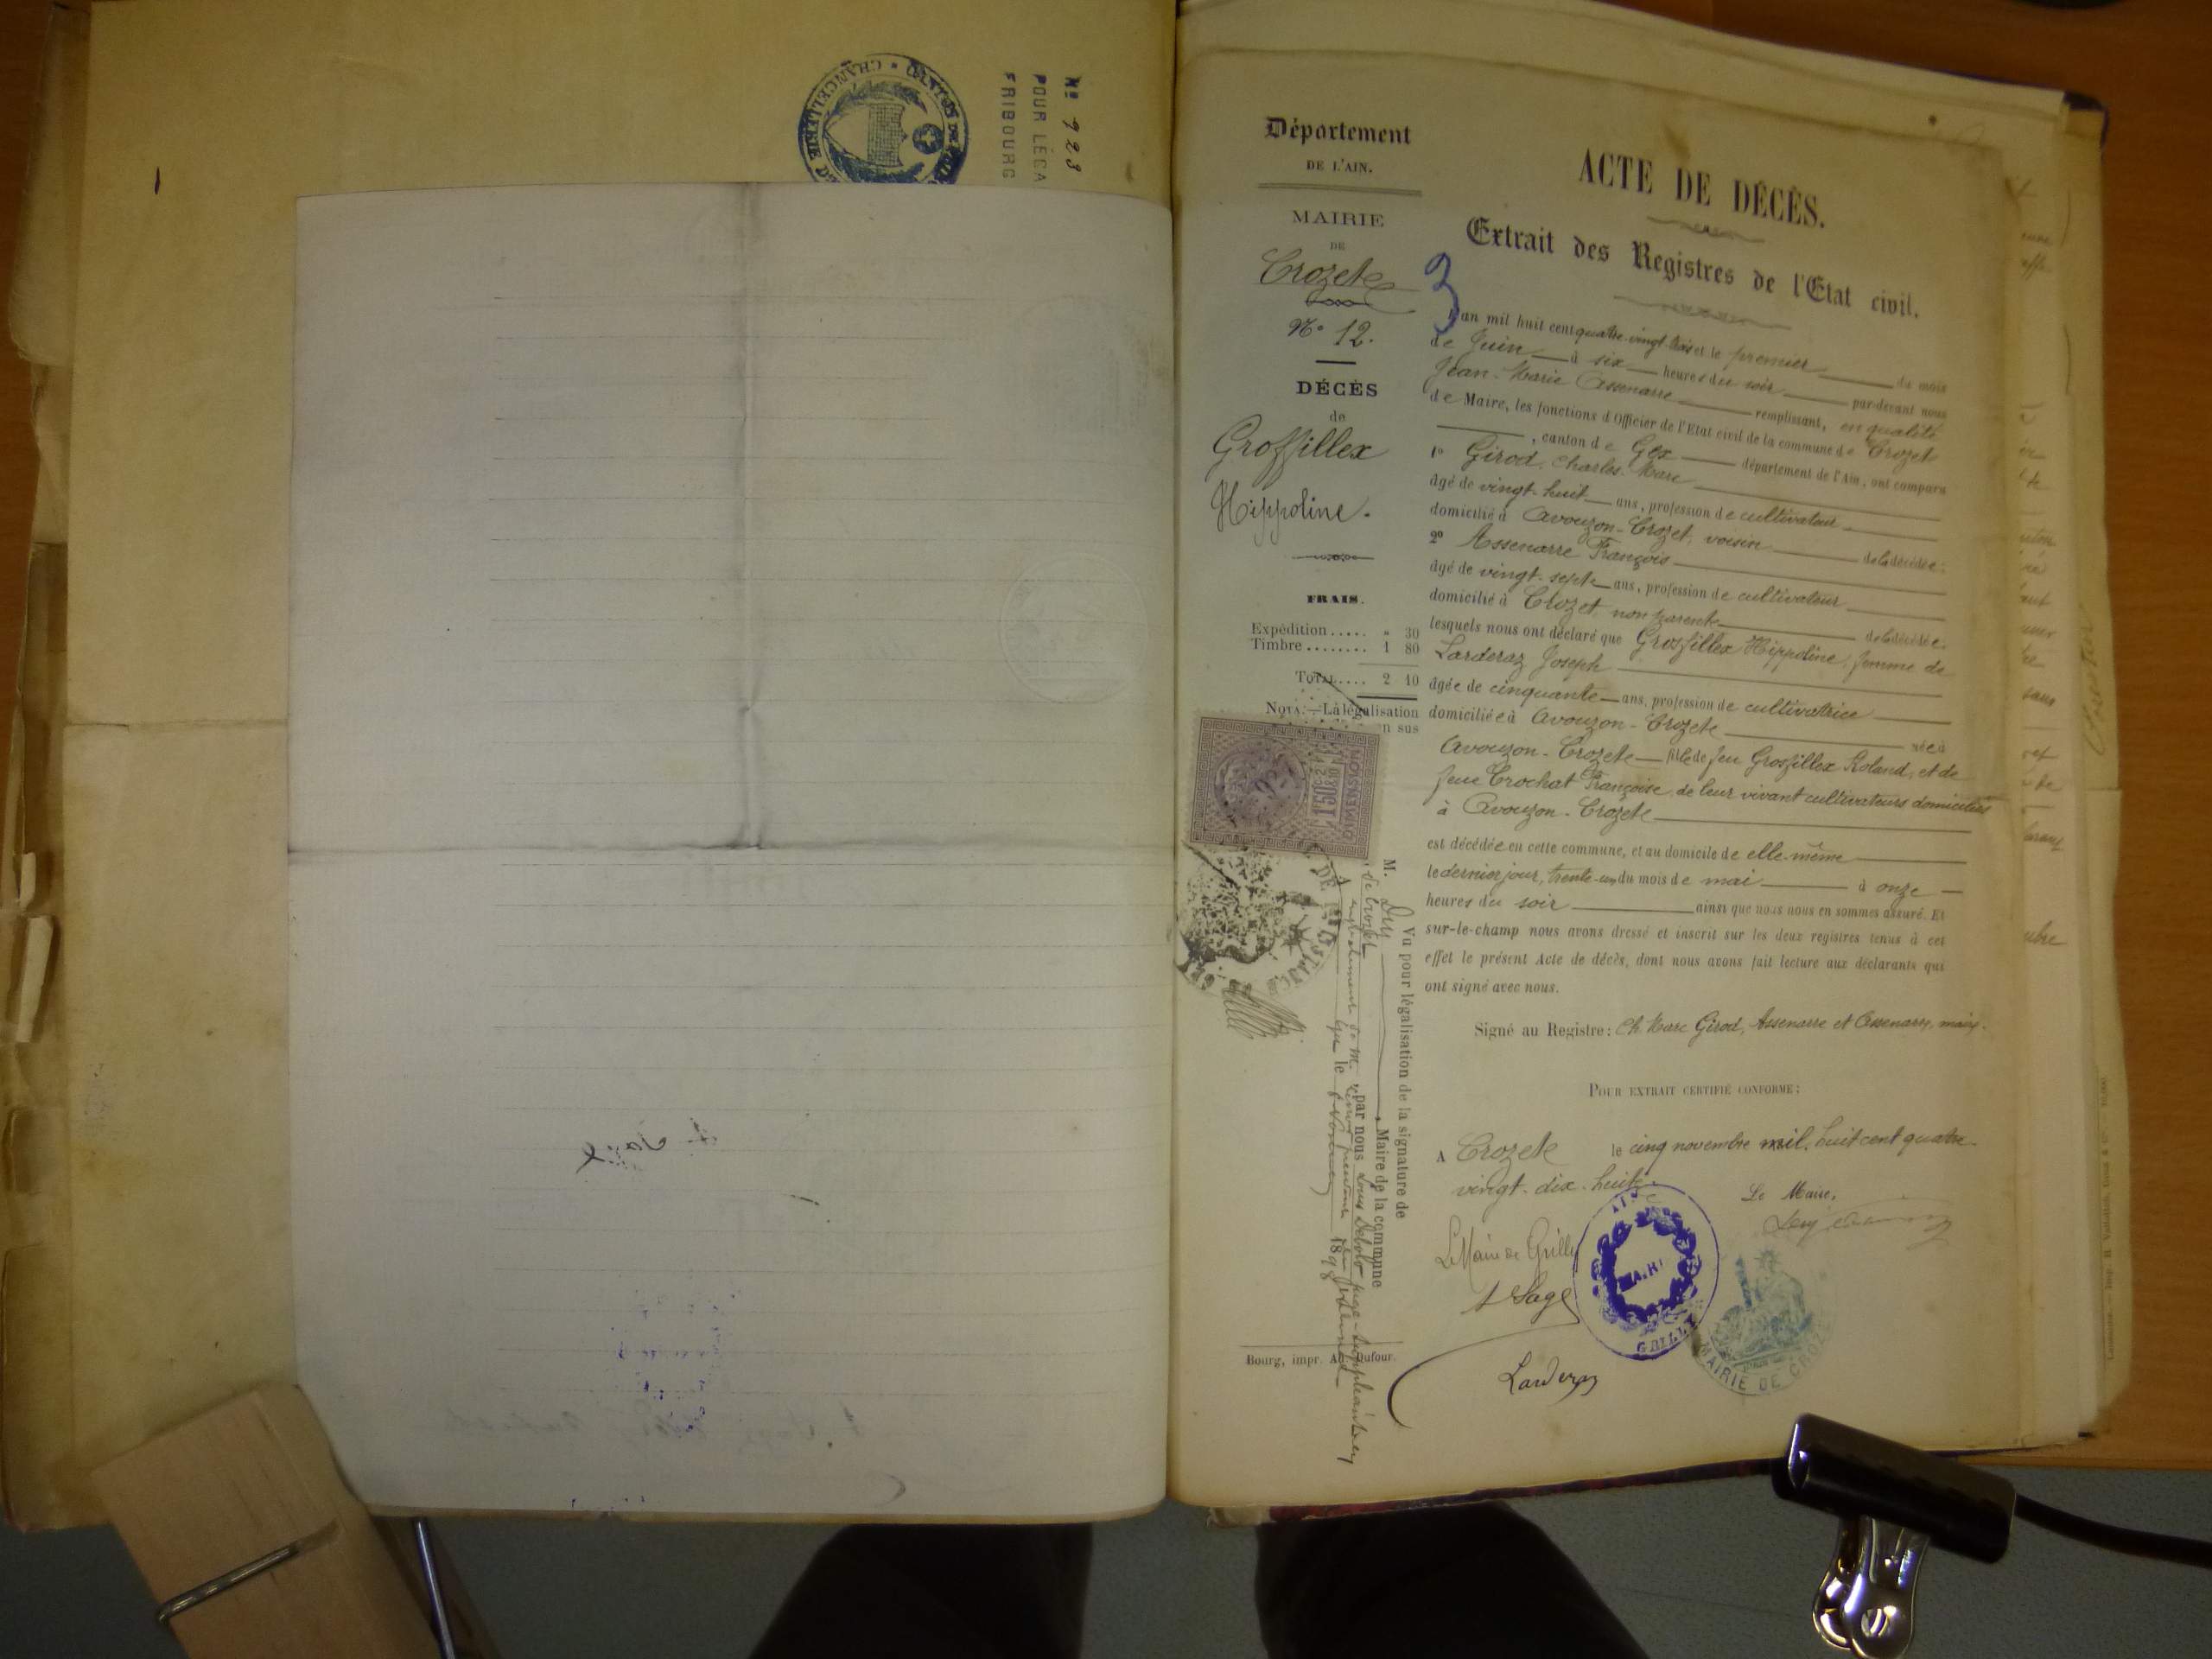 No 923
POUR LÉGA
FRIBOURG
CHANCELLERIE
Département
DE L'AIN.
MAIRIE
DE
Crozete
No 12.
DÉCÈS
de
Grosfillex
Hippoline.
FRAIS.
Expédition..... " 30
Timbre........ 1 80
TOTAL.... 2 10
NOTA.—La légalisation
n sus
DIMENSION
Bourg, impr. Ad. Dufour.
ACTE DE DÉCÈS.
Extrait des Registres de l'Etat civil.
3
L'an mil huit cent quatre-vingt-trois et le premier du mois
de Juin à six heures du soir par-devant nous
Jean-Marie Assenarre remplissant, en qualité
de Maire, les fonctions d'Officier de l'Etat civil de la commune de Crozet
, canton de Gex département de l'Ain, ont comparu
1o Girod, Charles-Marc
âgé de vingt-huit ans, profession de cultivateur
domicilié à Avouzon-Crozet, voisin de la décédée;
2o Assenarre François
âgé de vingt-septe ans, profession de cultivateur
domicilié à Crozet, non parente de la décédée.
lesquels nous ont déclaré que Grosfillex Hippoline, femme de
Larderaz Joseph
âgée de cinquante ans, profession de cultivatrice
domiciliée à Avouzon-Crozete née à
Avouzon-Crozete fille de feu Grosfillex Roland, et de
feue Crochat Françoise, de leur vivant cultivateurs domiciliés
à Avouzon-Crozete
est décédée en cette commune, et au domicile de elle-même
le dernier jour, trente-un du mois de mai à onze
heures du soir ainsi que nous nous en sommes assuré. Et
sur-le-champ nous avons dressé et inscrit sur les deux registres tenus à cet
effet le présent Acte de décès, dont nous avons fait lecture aux déclarants qui
ont signé avec nous.
Signé au Registre: Ch. Marc Girod, Assenarre et Assenarre, maire.
POUR EXTRAIT CERTIFIÉ CONFORME:
A Crozete le cinq novembre mil, huit cent quatre-
vingt-dix-huit.
Le Maire,
Le Maire de Grilly
A Sage
AIN
MAIRI
GRILLY
MAIRIE DE CROZE
Larderaz
Vu pour légalisation de la signature de
M. Maire de la commune
de Crozet par nous Louis juge-suppléant
le 1898